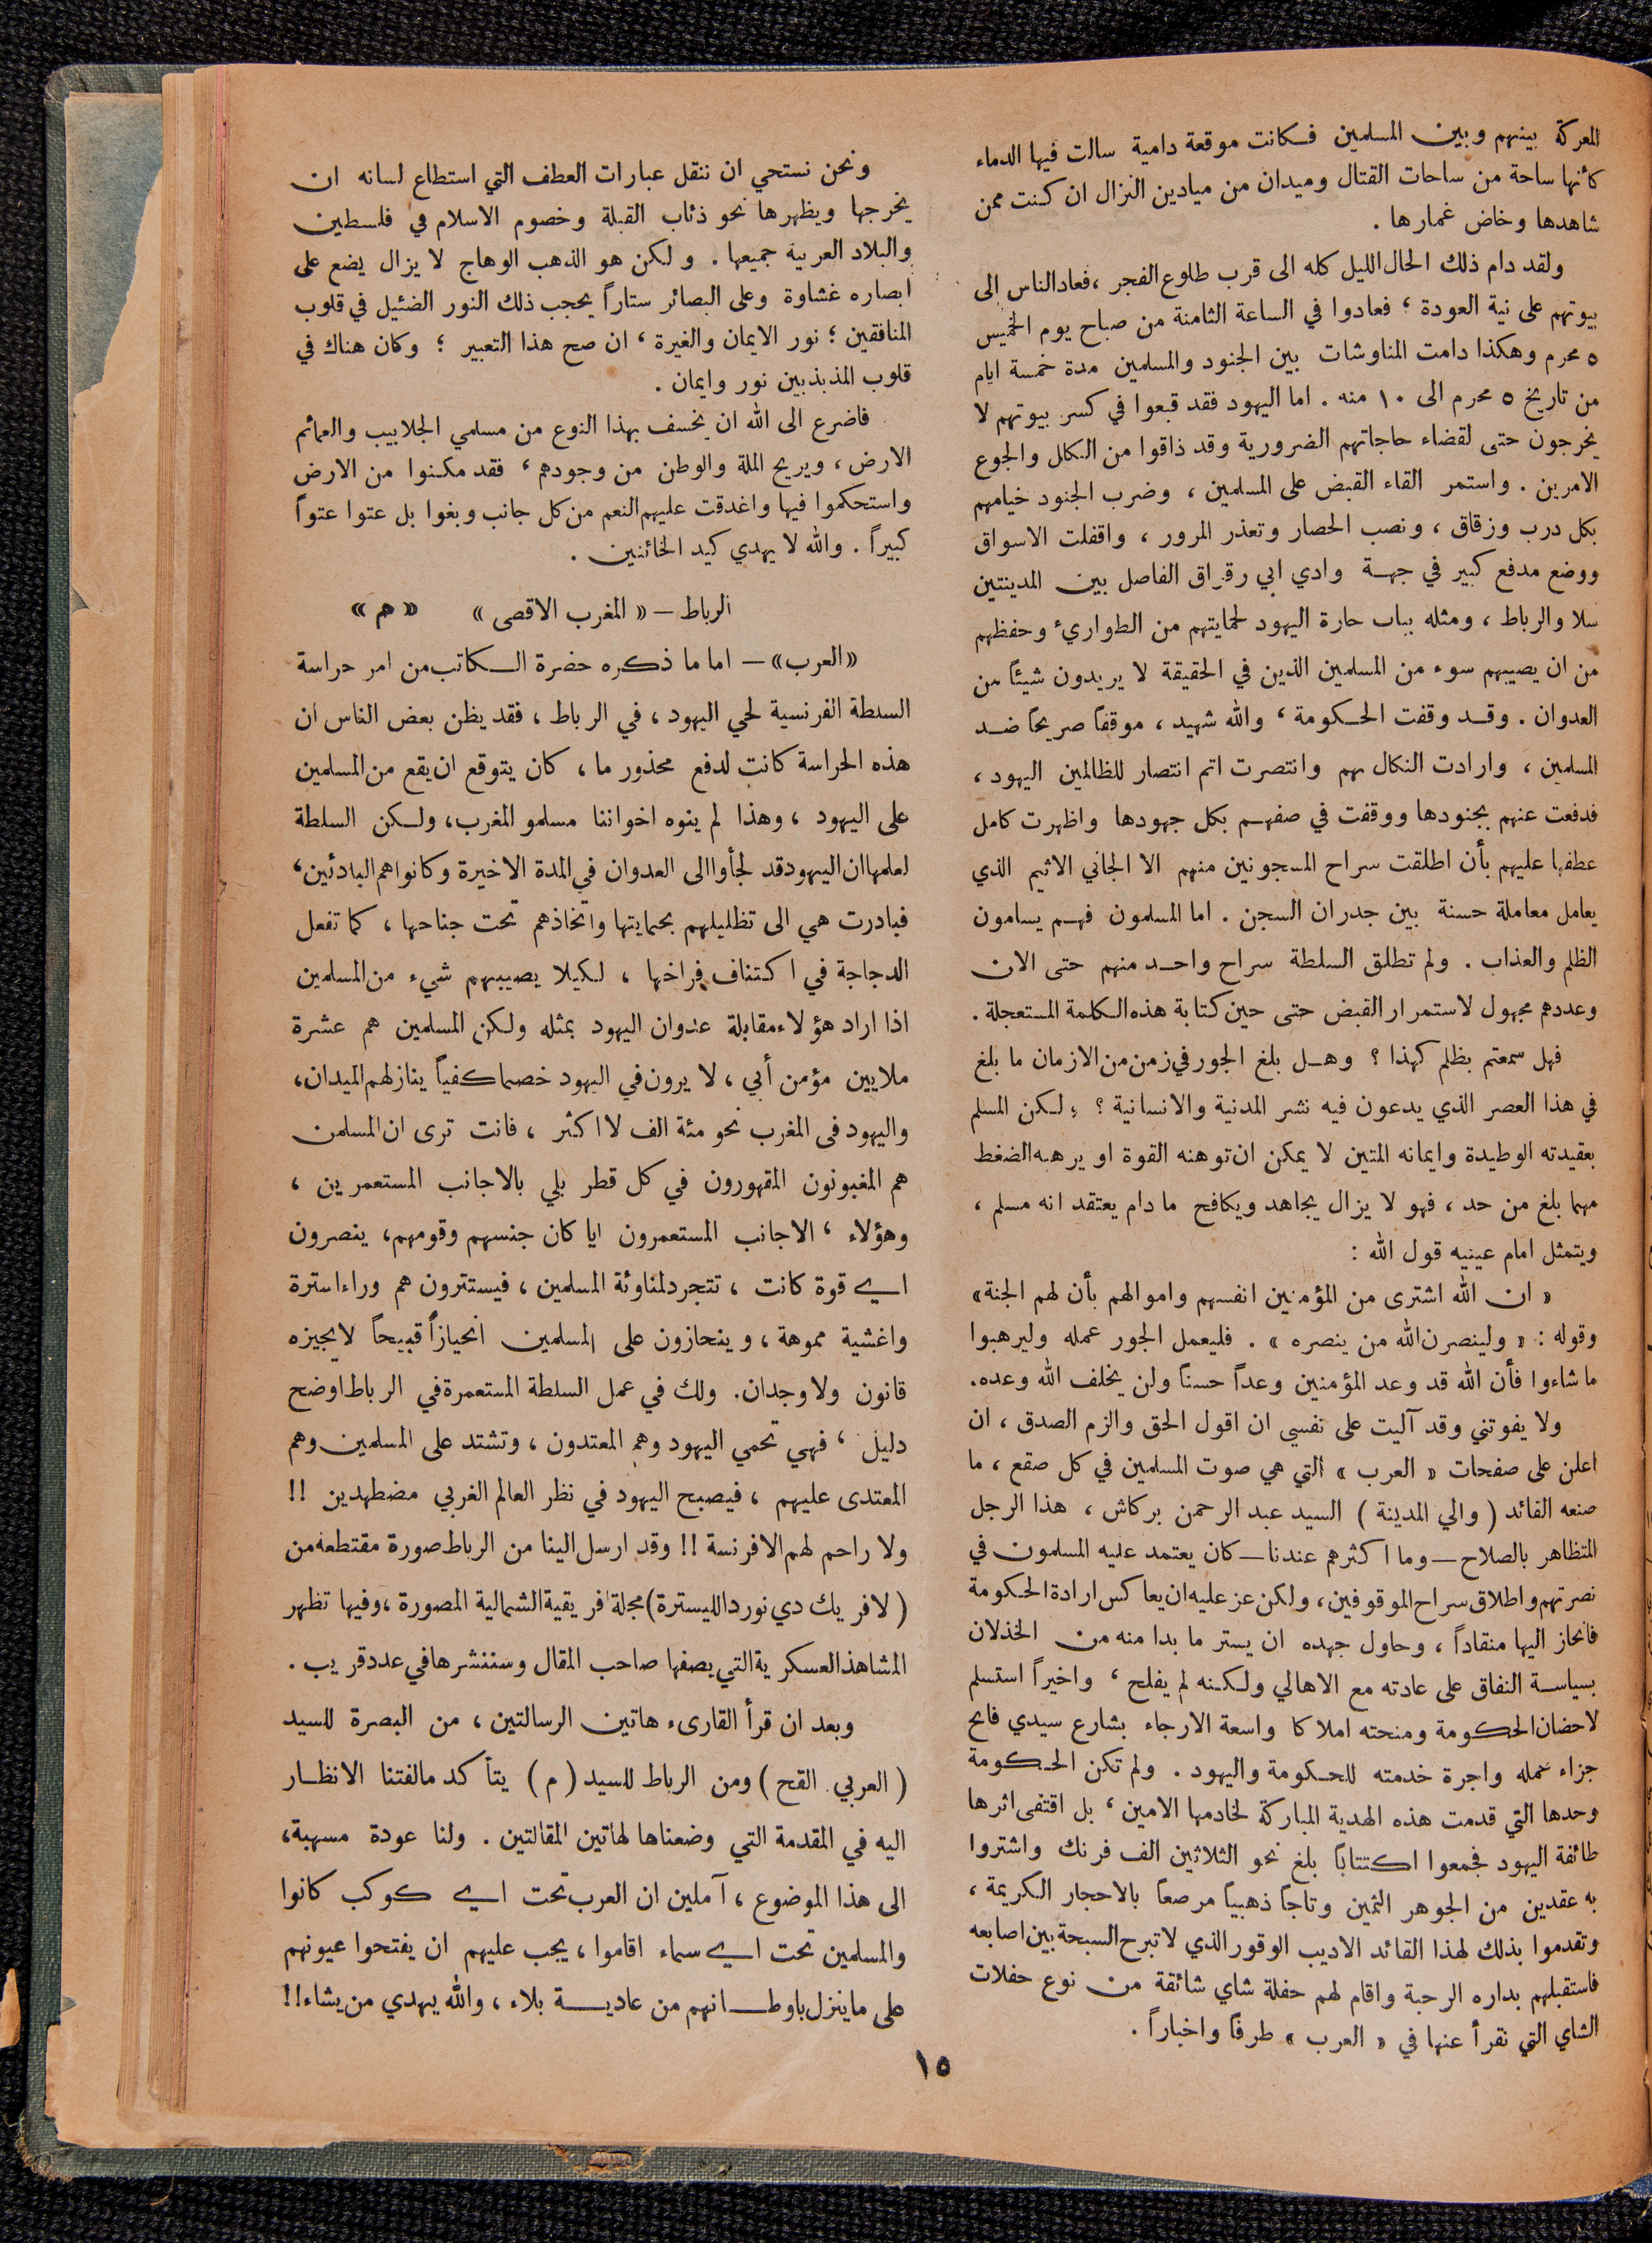 المعركة بينهم وبين المسلمين فكانت موقعة دامية سالت فيها الدماء
كأنها ساحة من ساحات القتال وميدان من ميادين النزال ان كنت ممن
شاهدها وخاض غمارها .
ولقد دام ذلك الحال الليل كله الى قرب طلوع الفجر ، فعاد الناس الى
بيوتهم على نية العودة ؛ فعادوا في الساعة الثامنة من صباح يوم الخميس
٥ محرم وهكذا دامت المناوشات بين الجنود والمسلمين مدة خمسة ايام
من تاريخ ٥ محرم الى ١٠ منه . اما اليهود فقد قبعوا في كسر بيوتهم لا
يخرجون حتى لقضاء حاجاتهم الضرورية وقد ذاقوا من النكال والجوع
الامرين . واستمر القاء القبض على المسلمين ، وضرب الجنود خيامهم
بكل درب وزقاق ، ونصب الحصار وتعذر المرور ، واقفلت الاسواق
ووضع مدفع كبير في جهة وادي ابي رقراق الفاصل بين المدينتين
سلا والرباط ، ومثله بباب حارة اليهود لحمايتهم من الطوارئ وحفظهم
من ان يصيبهم سوء من المسلمين الذين في الحقيقة لا يريدون شيئاً من
العدوان . وقد وقفت الحكومة ، والله شهيد ، موقفاً صريحاً ضد
المسلمين ، وارادت النكال بهم وانتصرت اتم انتصار للظالمين اليهود ،
فدفعت عنهم بجنودها ووقفت في صفهم بكل جهودها واظهرت كامل
عطفها عليهم بأن اطلقت سراح المسجونين منهم الا الجاني الاثيم الذي
يعامل معاملة حسنة بين جدران السجن . اما المسلمون فهم يسامون
الظلم والعذاب . ولم تطلق السلطة سراح واحد منهم حتى الان
وعددهم مجهول لاستمرار القبض حتى حين كتابة هذه الكلمة المستعجلة .
فهل سمعتم بظلم كهذا ؟ وهل بلغ الجور في زمن من الازمان ما بلغ
في هذا العصر الذي يدعون فيه نشر المدنية والانسانية ؟ ولكن المسلم
بعقيدته الوطيدة وايمانه المتين لا يمكن ان توهنه القوة او يرهبه الضغط
مهما بلغ من حد ، فهو لا يزال يجاهد ويكافح ما دام يعتقد انه مسلم ،
ويتمثل امام عينيه قول الله :
« ان الله اشترى من المؤمنين انفسهم واموالهم بأن لهم الجنة»
وقوله : « ولينصرن الله من ينصره » . فليعمل الجور عمله وليرهبوا
ما شاءوا فأن الله قد وعد المؤمنين وعداً حسناً ولن يخلف الله وعده.
ولا يفوتني وقد آليت على نفسي ان اقول الحق والزم الصدق ، ان
اعلن على صفحات « العرب » التي هي صوت المسلمين في كل صقع ، ما
صنعه القائد ( والي المدينة ) السيد عبد الرحمن بركاش ، هذا الرجل
المتظاهر بالصلاح — وما اكثرهم عندنا — كان يعتمد عليه المسلمون في
نصرتهم واطلاق سراح الموقوفين ، ولكن عز عليه ان يعاكس ارادة الحكومة
فانحاز اليها منقاداً ، وحاول جهده ان يستر ما بدا منه من الخذلان
بسياسة النفاق على عادته مع الاهالي ولكنه لم يفلح ، واخيراً استسلم
لاحضان الحكومة ومنحته املاكا واسعة الارجاء بشارع سيدي فاتح
جزاء عمله واجرة خدمته للحكومة واليهود . ولم تكن الحكومة
وحدها التي قدمت هذه الهدية المباركة لخادمها الامين ؛ بل اقتفى اثرها
طائفة اليهود فجمعوا اكتتاباً بلغ نحو الثلاثين الف فرنك واشتروا
به عقدين من الجوهر الثمين وتاجاً ذهبياً مرصعاً بالاحجار الكريمة ،
وتقدموا بذلك لهذا القائد الاديب الوقور الذي لا تبرح السبحة بين اصابعه
فاستقبلهم بداره الرحبة واقام لهم حفلة شاي شائقة من نوع حفلات
الشاي التي نقرأ عنها في « العرب » طرفاً واخباراً .
ونحن نستحي ان ننقل عبارات العطف التي استطاع لسانه ان
يخرجها ويظهرها نحو ذئاب القبلة وخصوم الاسلام في فلسطين
والبلاد العربية جميعها . ولكن هو الذهب الوهاج لا يزال يضع على
ابصاره غشاوة وعلى البصائر ستاراً يحجب ذلك النور الضئيل في قلوب
المنافقين ؛ نور الايمان والغيرة ، ان صح هذا التعبير ؛ وكان هناك في
قلوب المذبذبين نور وايمان .
فاضرع الى الله ان يخسف بهذا النوع من مسلمي الجلابيب والعمائم
الارض ، ويريح الملة والوطن من وجودهم ؛ فقد مكنوا من الارض
واستحكموا فيها واغدقت عليهم النعم من كل جانب وبغوا بل عتوا عتواً
كبيراً . والله لا يهدي كيد الخائنين .
الرباط — « المغرب الاقصى » « م »
«العرب» — اما ما ذكره حضرة الكاتب من امر حراسة
السلطة الفرنسية لحي اليهود ، في الرباط ، فقد يظن بعض الناس ان
هذه الحراسة كانت لدفع محذور ما ، كان يتوقع ان يقع من المسلمين
على اليهود ، وهذا لم ينوه اخواننا مسلمو المغرب ، ولكن السلطة
لعلمها ان اليهود قد لجأوا الى العدوان في المدة الاخيرة وكانوا هم البادئين ،
فبادرت هي الى تظليلهم بحمايتها واتخاذهم تحت جناحها ، كما تفعل
الدجاجة في اكتناف فراخها ، لكيلا يصيبهم شيء من المسلمين
اذا اراد هؤلاء مقابلة عدوان اليهود بمثله ولكن المسلمين هم عشرة
ملايين مؤمن أبي ، لا يرون في اليهود خصما كفياً ينازلهم الميدان ،
واليهود في المغرب نحو مئة الف لا اكثر ، فانت ترى ان المسلمن
هم المغبونون المقهورون في كل قطر بلي بالاجانب المستعمرين ،
وهؤلاء ، الاجانب المستعمرون ايا كان جنسهم وقومهم ، ينصرون
اي قوة كانت ، تتجرد لمناوئة المسلمين ، فيستترون هم وراء استرة
واغشية مموهة ، وينحازون على المسلمين انحيازاً قبيحاً لا يجيزه
قانون ولا وجدان . ولك في عمل السلطة المستعمرة في الرباط اوضح
دليل ، فهي تحمي اليهود وهم المعتدون ، وتشتد على المسلمين وهم
المعتدى عليهم ، فيصبح اليهود في نظر العالم الغربي مضطهدين !!
ولا راحم لهم الا فرنسة !! وقد ارسل الينا من الرباط صورة مقتطعه من
( لافريك دي نورد الليسترة ) مجلة افريقية الشمالية المصورة ، وفيها تظهر
المشاهد العسكرية التي يصفها صاحب المقال وسننشرها في عدد قريب .
وبعد ان قرأ القارىء هاتين الرسالتين ، من البصرة للسيد
( العربي القح ) ومن الرباط للسيد ( م ) يتأكد ما لفتنا الانظار
اليه في المقدمة التي وضعناها لهاتين المقالتين . ولنا عودة مسهبة ،
الى هذا الموضوع ، آملين ان العرب تحت اي كوكب كانوا
والمسلمين تحت اي سماء اقاموا ، يجب عليهم ان يفتحوا عيونهم
على ما ينزل باوطانهم من عادية بلاء ، والله يهدي من يشاء !!
١٥